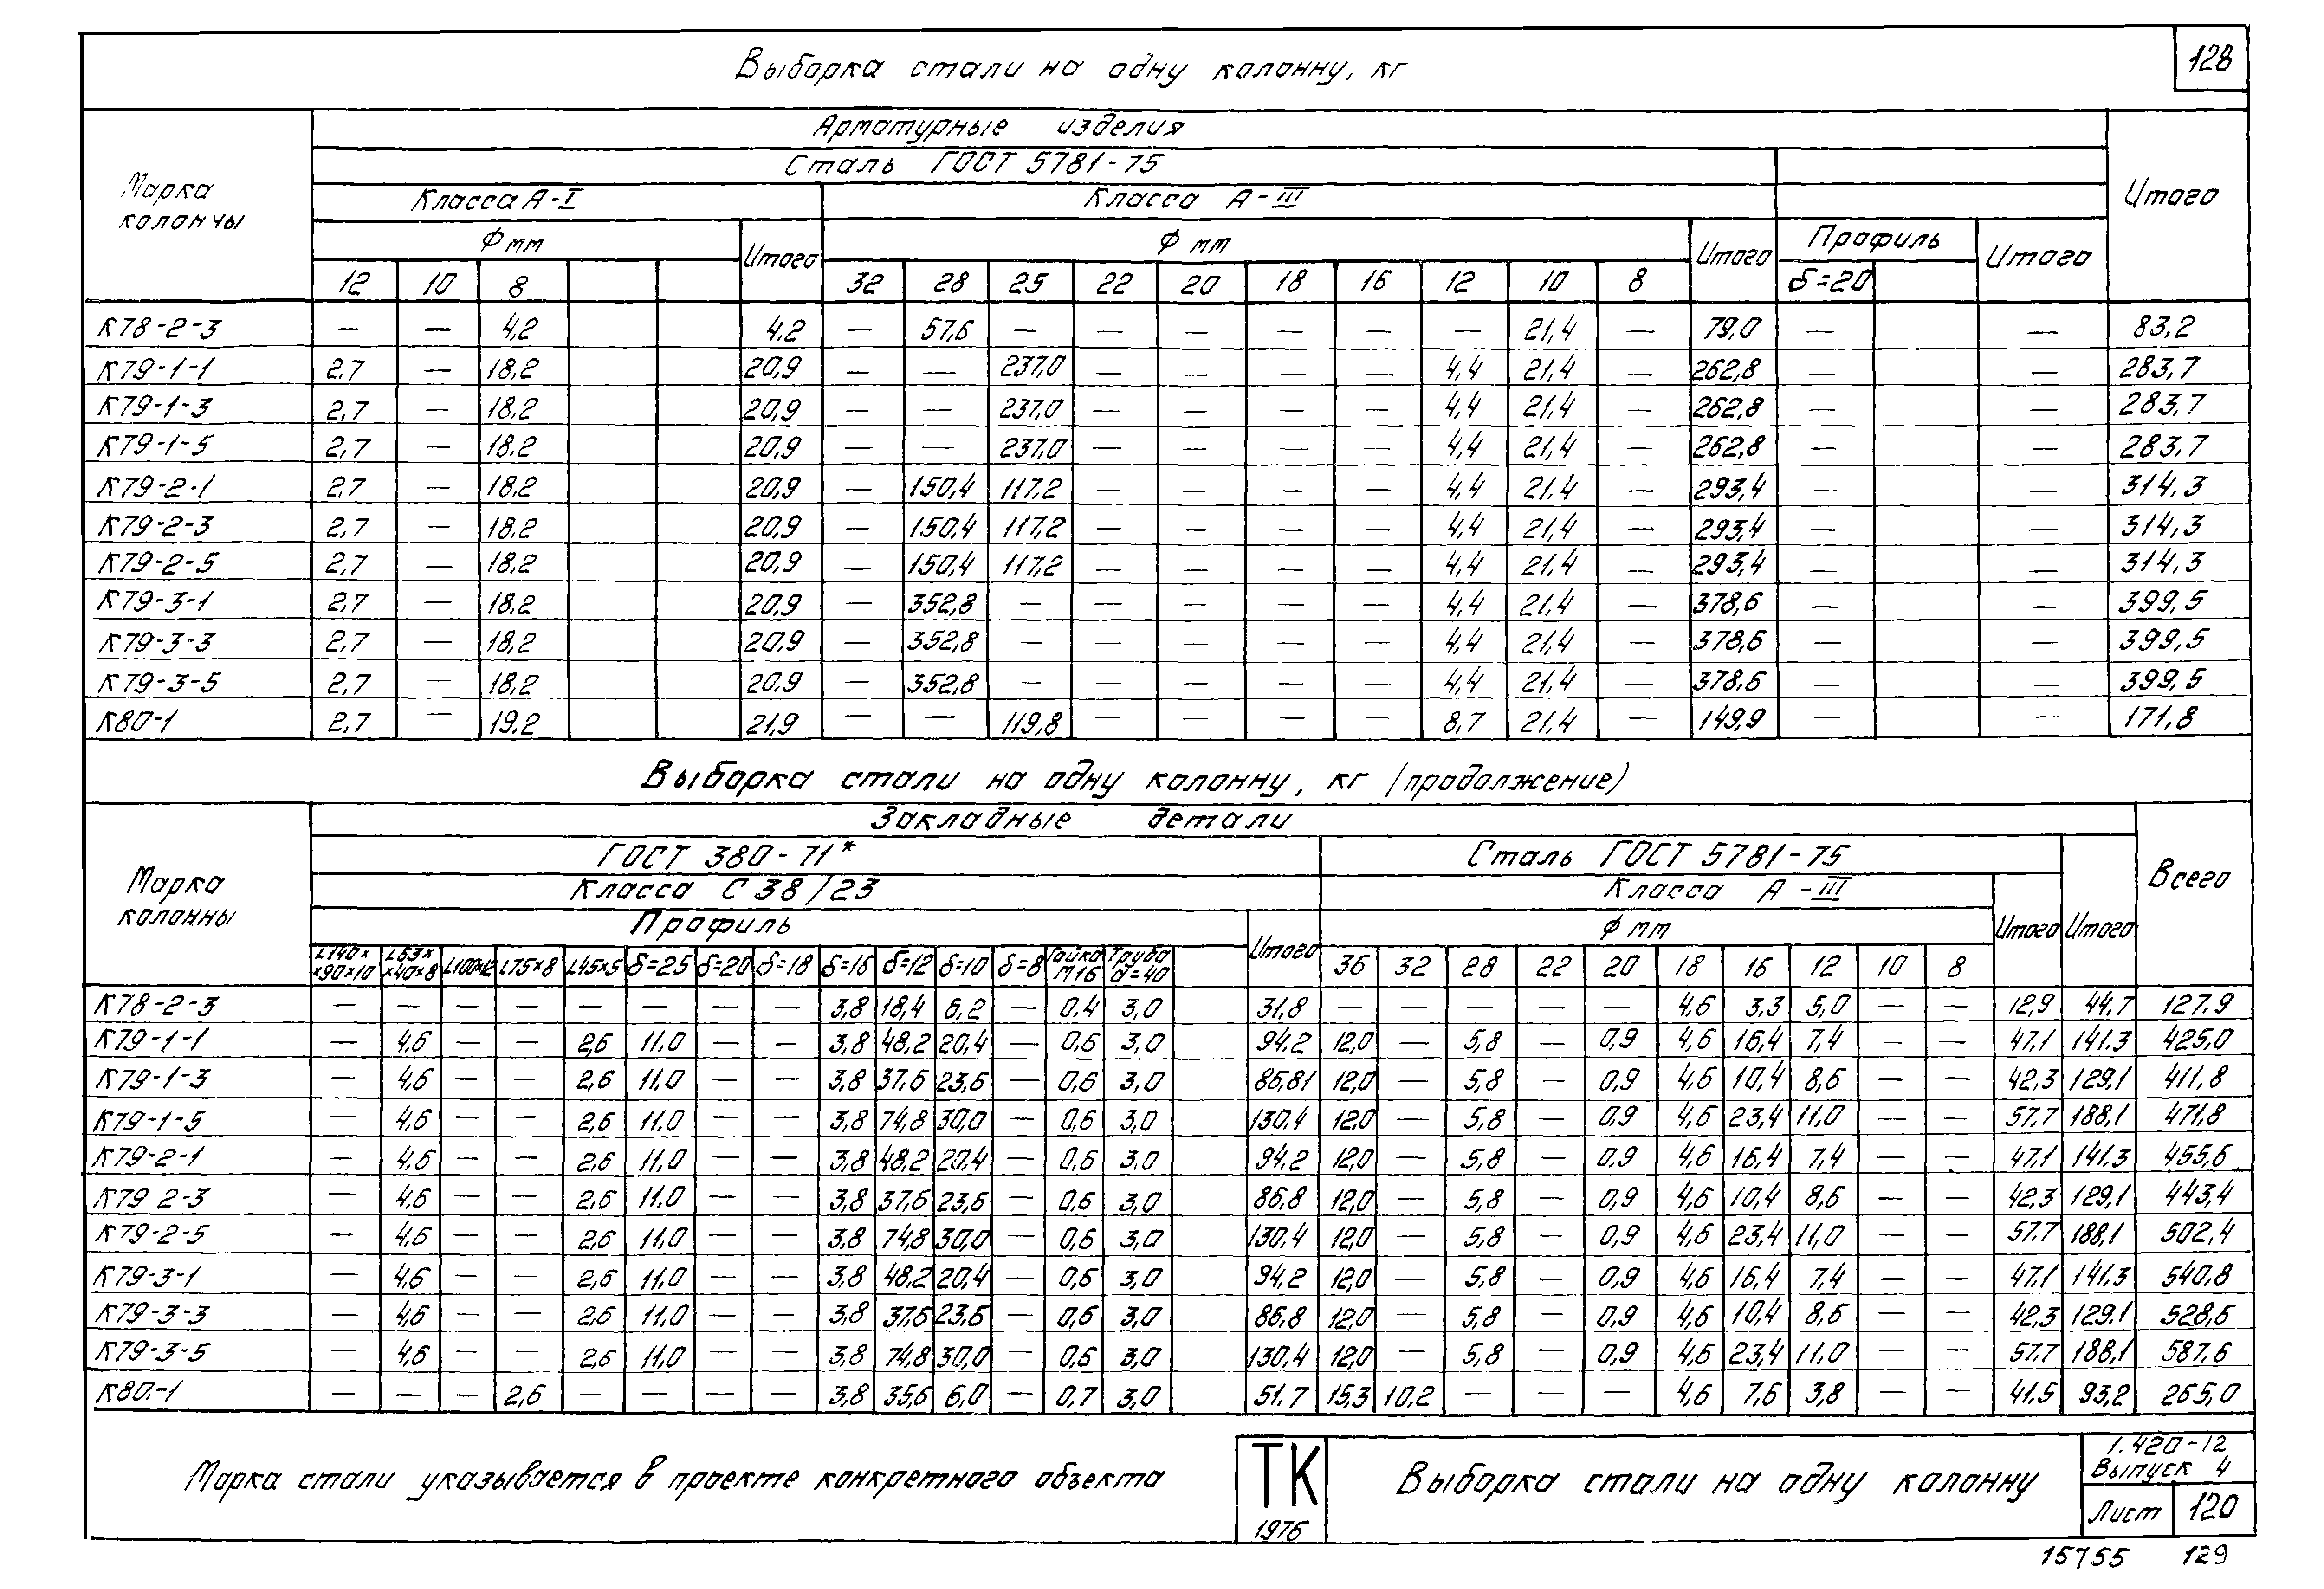 Выборка стали на одну колонну, кг
128
Марка колонны
Арматурные изделия
Итого
Сталь ГОСТ 5781-75
Класса А-I
Класса А-III
Ф мм
Итого
Ф мм
Итого
Профиль
Итого
12 10 8 32 28 25 22 20 18 16 12 10 8 δ=20
К78-2-3 — — 4,2 4,2 — 57,6 — — — — — — 21,4 — 79,0 — — 83,2
К79-1-1 2,7 — 18,2 20,9 — — 237,0 — — — — 4,4 21,4 — 262,8 — — 283,7
К79-1-3 2,7 — 18,2 20,9 — — 237,0 — — — — 4,4 21,4 — 262,8 — — 283,7
К79-1-5 2,7 — 18,2 20,9 — — 237,0 — — — — 4,4 21,4 — 262,8 — — 283,7
К79-2-1 2,7 — 18,2 20,9 — 150,4 117,2 — — — — 4,4 21,4 — 293,4 — — 314,3
К79-2-3 2,7 — 18,2 20,9 — 150,4 117,2 — — — — 4,4 21,4 — 293,4 — — 314,3
К79-2-5 2,7 — 18,2 20,9 — 150,4 117,2 — — — — 4,4 21,4 — 293,4 — — 314,3
К79-3-1 2,7 — 18,2 20,9 — 352,8 — — — — — 4,4 21,4 — 378,6 — — 399,5
К79-3-3 2,7 — 18,2 20,9 — 352,8 — — — — — 4,4 21,4 — 378,6 — — 399,5
К79-3-5 2,7 — 18,2 20,9 — 352,8 — — — — — 4,4 21,4 — 378,6 — — 399,5
К80-1 2,7 — 19,2 21,9 — — 119,8 — — — — 8,7 21,4 — 149,9 — — 171,8
Выборка стали на одну колонну, кг (продолжение)
Марка колонны
Закладные детали
Всего
ГОСТ 380-71*
Сталь ГОСТ 5781-75
Класса С 38/23
Класса А-III
Профиль
Итого
Ф мм
Итого
Итого
L140××90×10 L63××40×8 L100×12 L75×8 L45×5 δ=25 δ=20 δ=18 δ=16 δ=12 δ=10 δ=8 Гайка М16 Труба d=40 36 32 28 22 20 18 16 12 10 8
К78-2-3 — — — — — — — — 3,8 18,4 6,2 — 0,4 3,0 31,8 — — — — — 4,6 3,3 5,0 — — 12,9 44,7 127,9
К79-1-1 — 4,6 — — 2,6 11,0 — — 3,8 48,2 20,4 — 0,6 3,0 94,2 12,0 — 5,8 — 0,9 4,6 16,4 7,4 — — 47,1 141,3 425,0
К79-1-3 — 4,6 — — 2,6 11,0 — — 3,8 37,6 23,6 — 0,6 3,0 86,81 12,0 — 5,8 — 0,9 4,6 10,4 8,6 — — 42,3 129,1 411,8
К79-1-5 — 4,6 — — 2,6 11,0 — — 3,8 74,8 30,0 — 0,6 3,0 130,4 12,0 — 5,8 — 0,9 4,6 23,4 11,0 — — 57,7 188,1 471,8
К79-2-1 — 4,6 — — 2,6 11,0 — — 3,8 48,2 20,4 — 0,6 3,0 94,2 12,0 — 5,8 — 0,9 4,6 16,4 7,4 — — 47,1 141,3 455,6
К79 2-3 — 4,6 — — 2,6 11,0 — — 3,8 37,6 23,6 — 0,6 3,0 86,8 12,0 — 5,8 — 0,9 4,6 10,4 8,6 — — 42,3 129,1 443,4
К79-2-5 — 4,6 — — 2,6 11,0 — — 3,8 74,8 30,0 — 0,6 3,0 130,4 12,0 — 5,8 — 0,9 4,6 23,4 11,0 — — 57,7 188,1 502,4
К79-3-1 — 4,6 — — 2,6 11,0 — — 3,8 48,2 20,4 — 0,6 3,0 94,2 12,0 — 5,8 — 0,9 4,6 16,4 7,4 — — 47,1 141,3 540,8
К79-3-3 — 4,6 — — 2,6 11,0 — — 3,8 37,6 23,6 — 0,6 3,0 86,8 12,0 — 5,8 — 0,9 4,6 10,4 8,6 — — 42,3 129,1 528,6
К79-3-5 — 4,6 — — 2,6 11,0 — — 3,8 74,8 30,0 — 0,6 3,0 130,4 12,0 — 5,8 — 0,9 4,6 23,4 11,0 — — 57,7 188,1 587,6
К80-1 — — — 2,6 — — — — 3,8 35,6 6,0 — 0,7 3,0 51,7 15,3 10,2 — — — 4,6 7,6 3,8 — — 41,5 93,2 265,0
Марка стали указывается в проекте конкретного объекта
ТК
1976
Выборка стали на одну колонну
1.420-12
Выпуск 4
Лист 120
15755 129